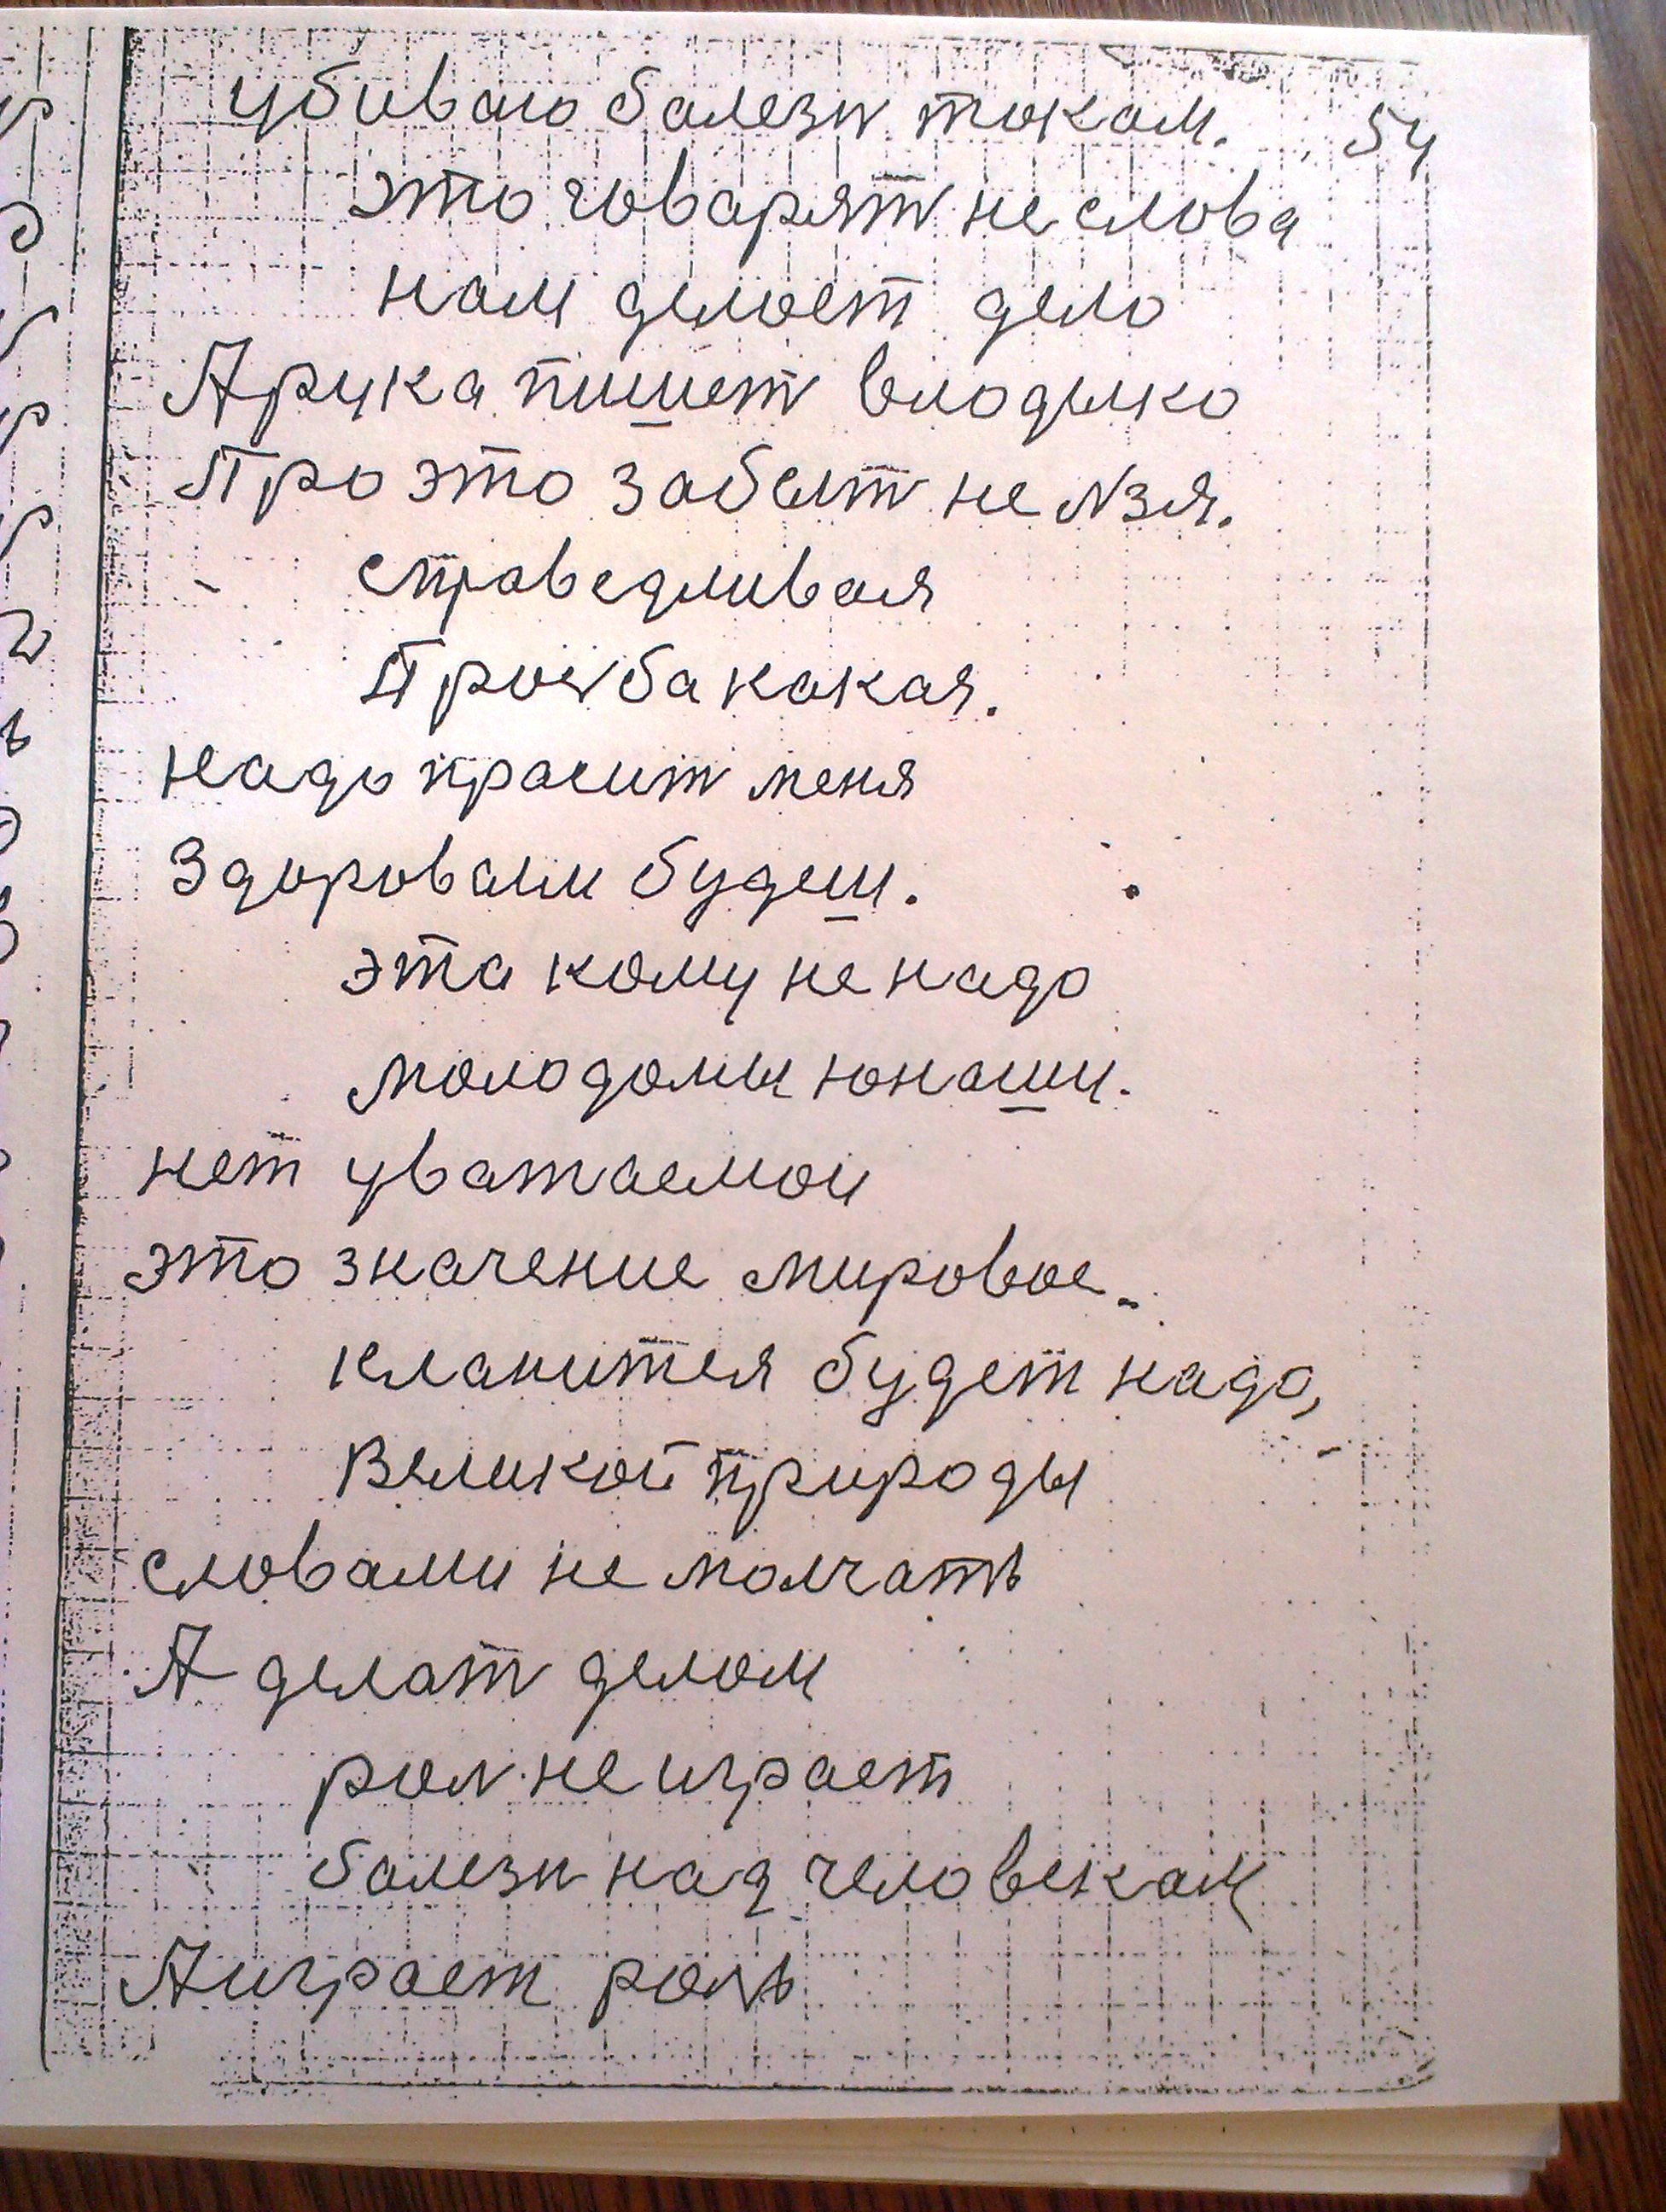 убиваю балезн токам. 54
это говарят не слова
нам делает дело
А рука пишет влодыко
Про это забыт не лзя.
справедливая
Прозба какая.
надо прасит меня
Здоровам будеш.
эта кому не надо
молодому юнаши.
нет уватаемои
это значение мировое.
кланится будет надо,
Великой природы
словами не молчать
А делат делом
рол не играет
балезн над человекам
А играет роль